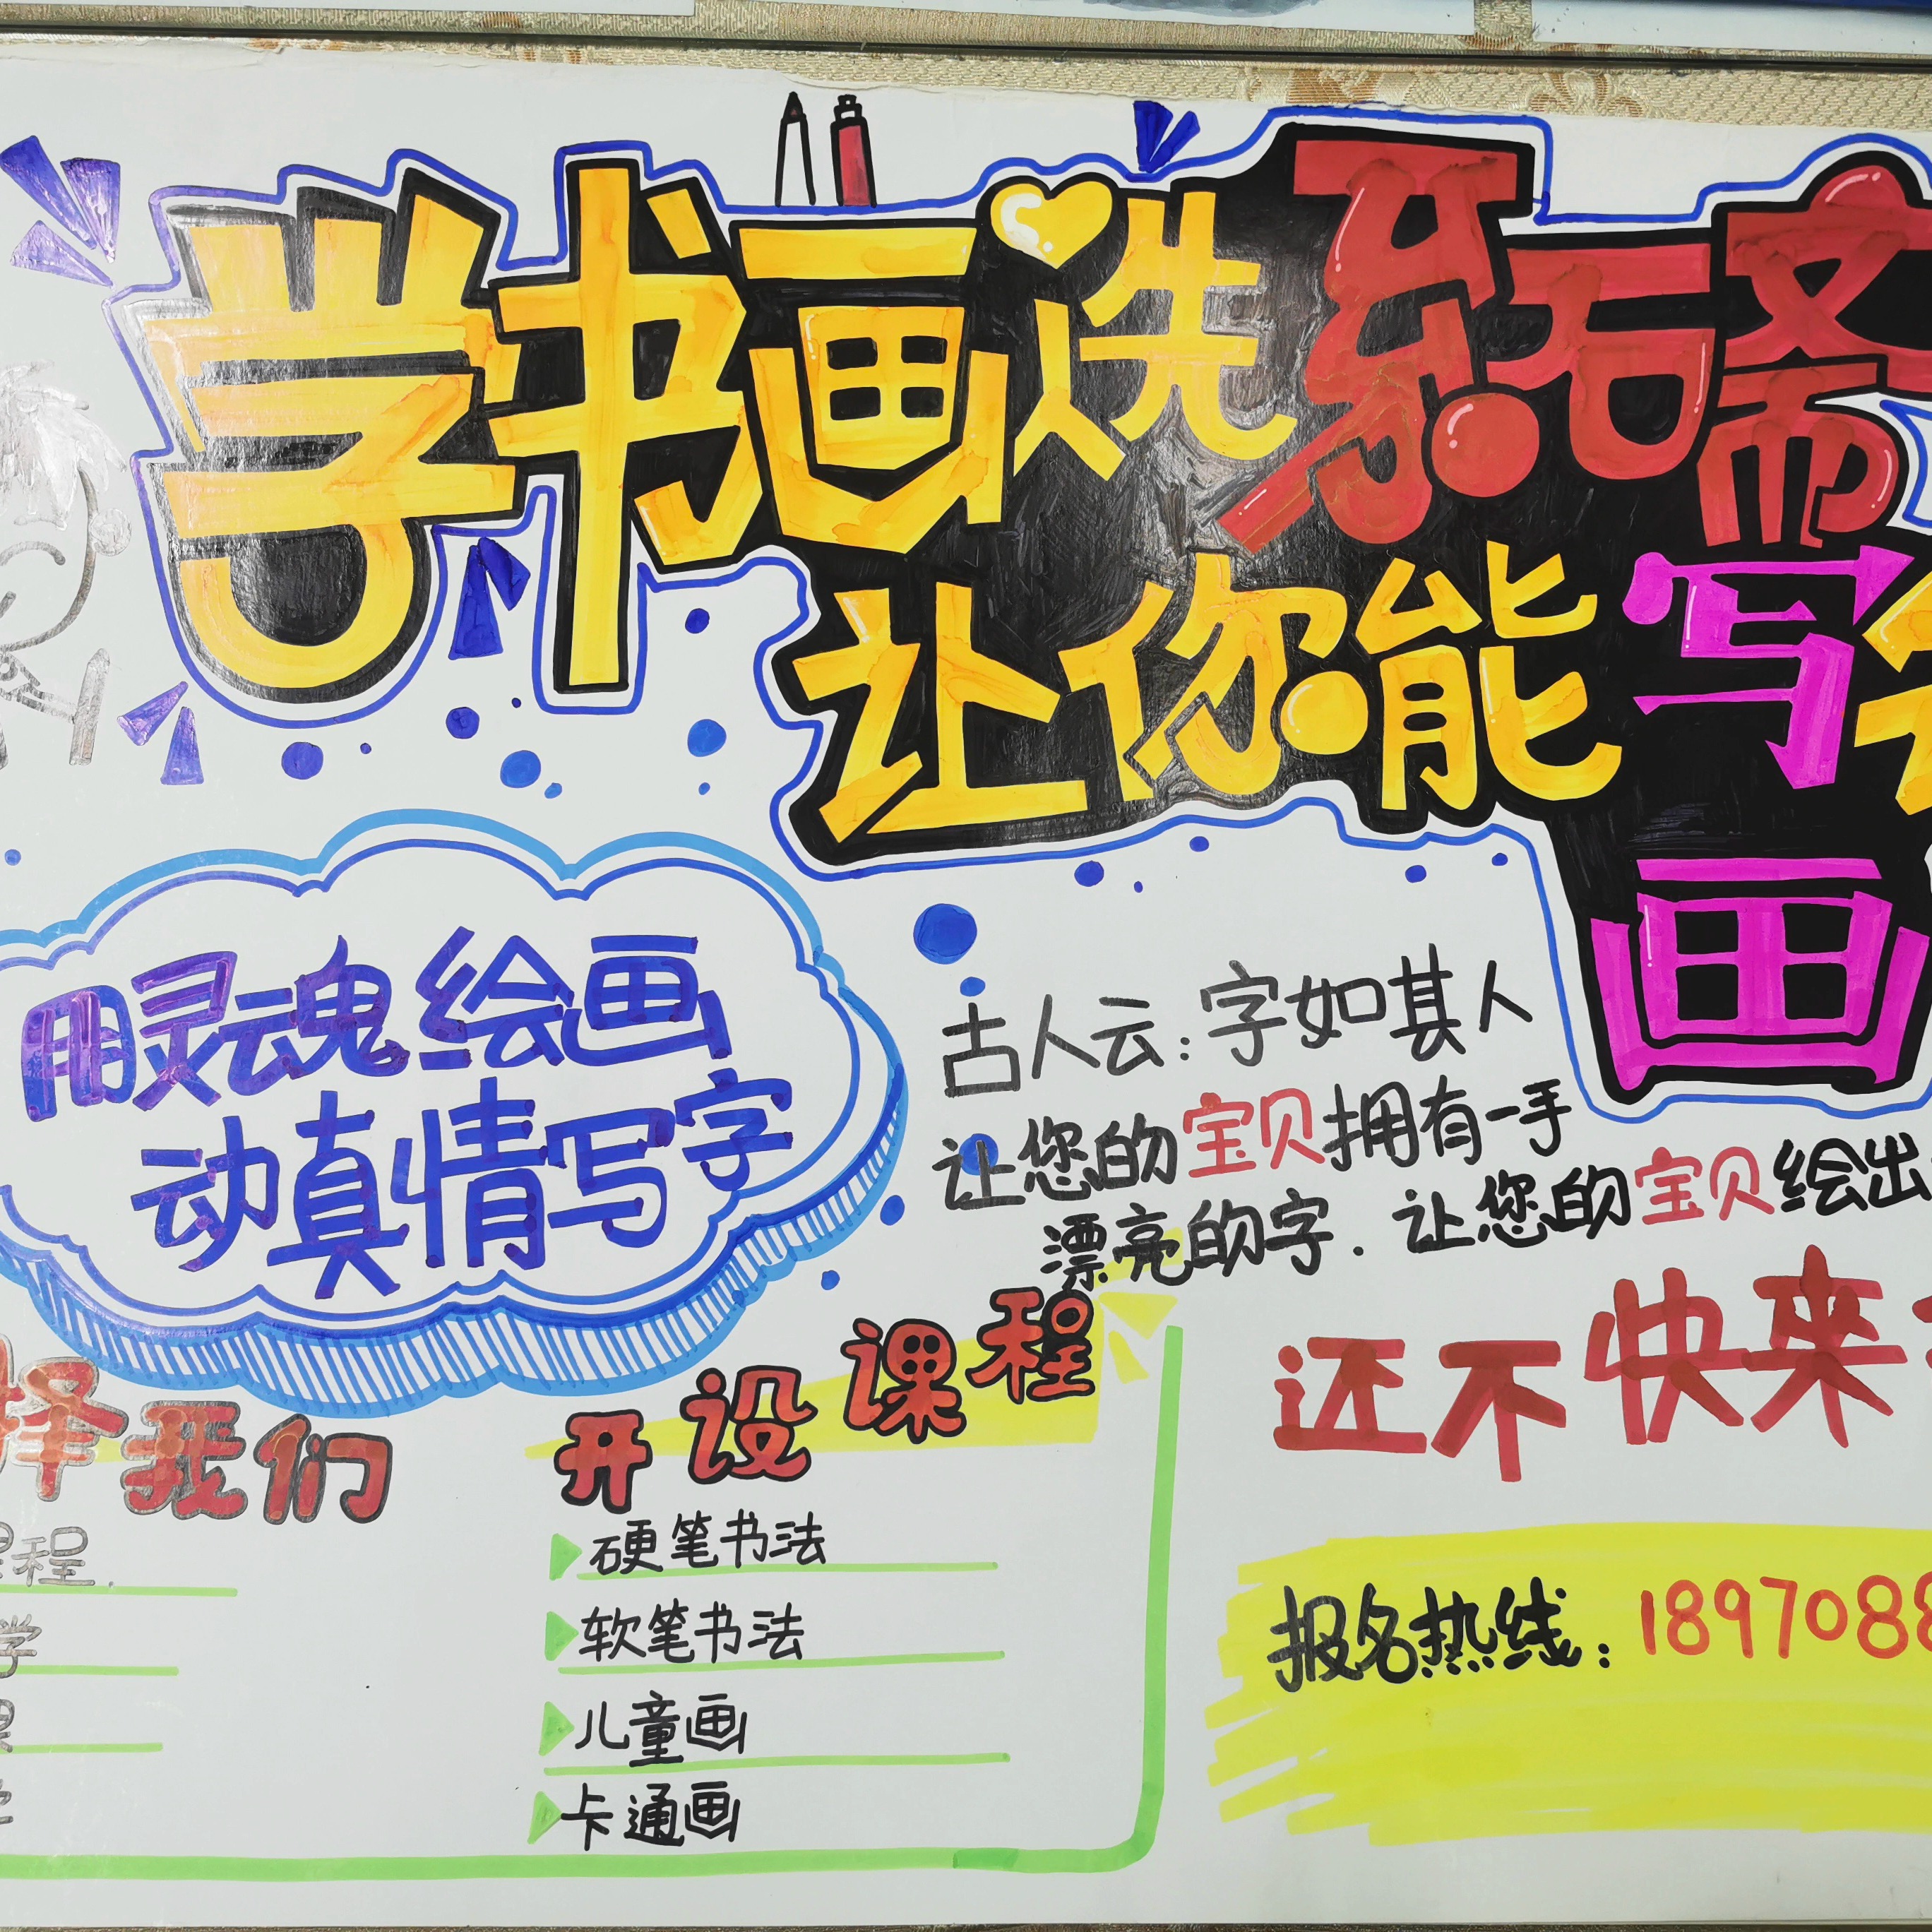 学书画选系石斋
让你能写
画
用灵魂绘画
动真情写字
古人云:字如其人
让您的宝贝拥有一手
漂亮的字.让您的宝贝绘出
还不快来
择我们
程.
学
开设课程
硬笔书法
软笔书法
儿童画
卡通画
报名热线:1897088